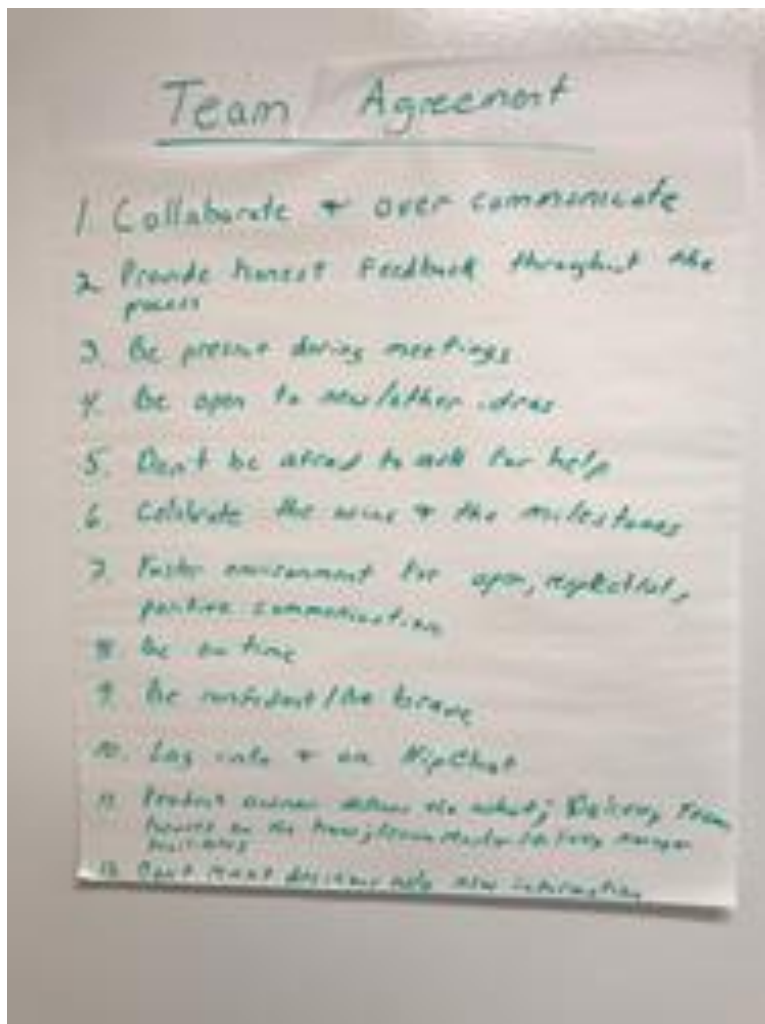 Team Agreement
1. Collaborate + over communicate
2. Provide honest Feedback throughout the
process
3. Be present during meetings
4. Be open to new/other ideas
5. Don't be afraid to ask for help
6. Celebrate the wins + the milestones
7. Foster environment for open, respectful,
positive communication
8. Be on time
9. Be confident/be brave
10. Log into + on HipChat
11. Product owner defines the what; Delivery Team
on the how; Scrum Master/Delivery Manager
12. Don't decisions new information